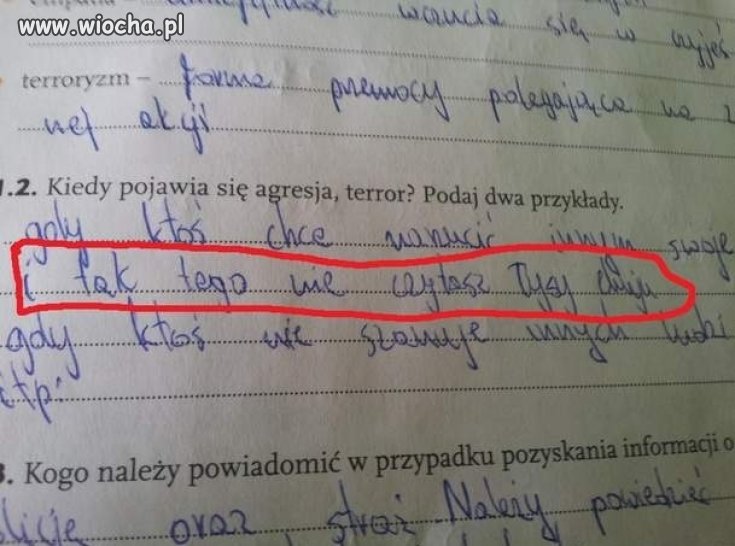 www.wiocha.pl
wczucia się w czyjeś
terroryzm – forma przemocy polegająca na
nej akcji
1.2. Kiedy pojawia się agresja, terror? Podaj dwa przykłady.
gdy ktoś chce narzucić innym swoje
i tak tego nie czytasz łysy chuju
gdy ktoś nie szanuje innych ludzi
itp.
3. Kogo należy powiadomić w przypadku pozyskania informacji o
licję oraz straż Należy powiedzieć